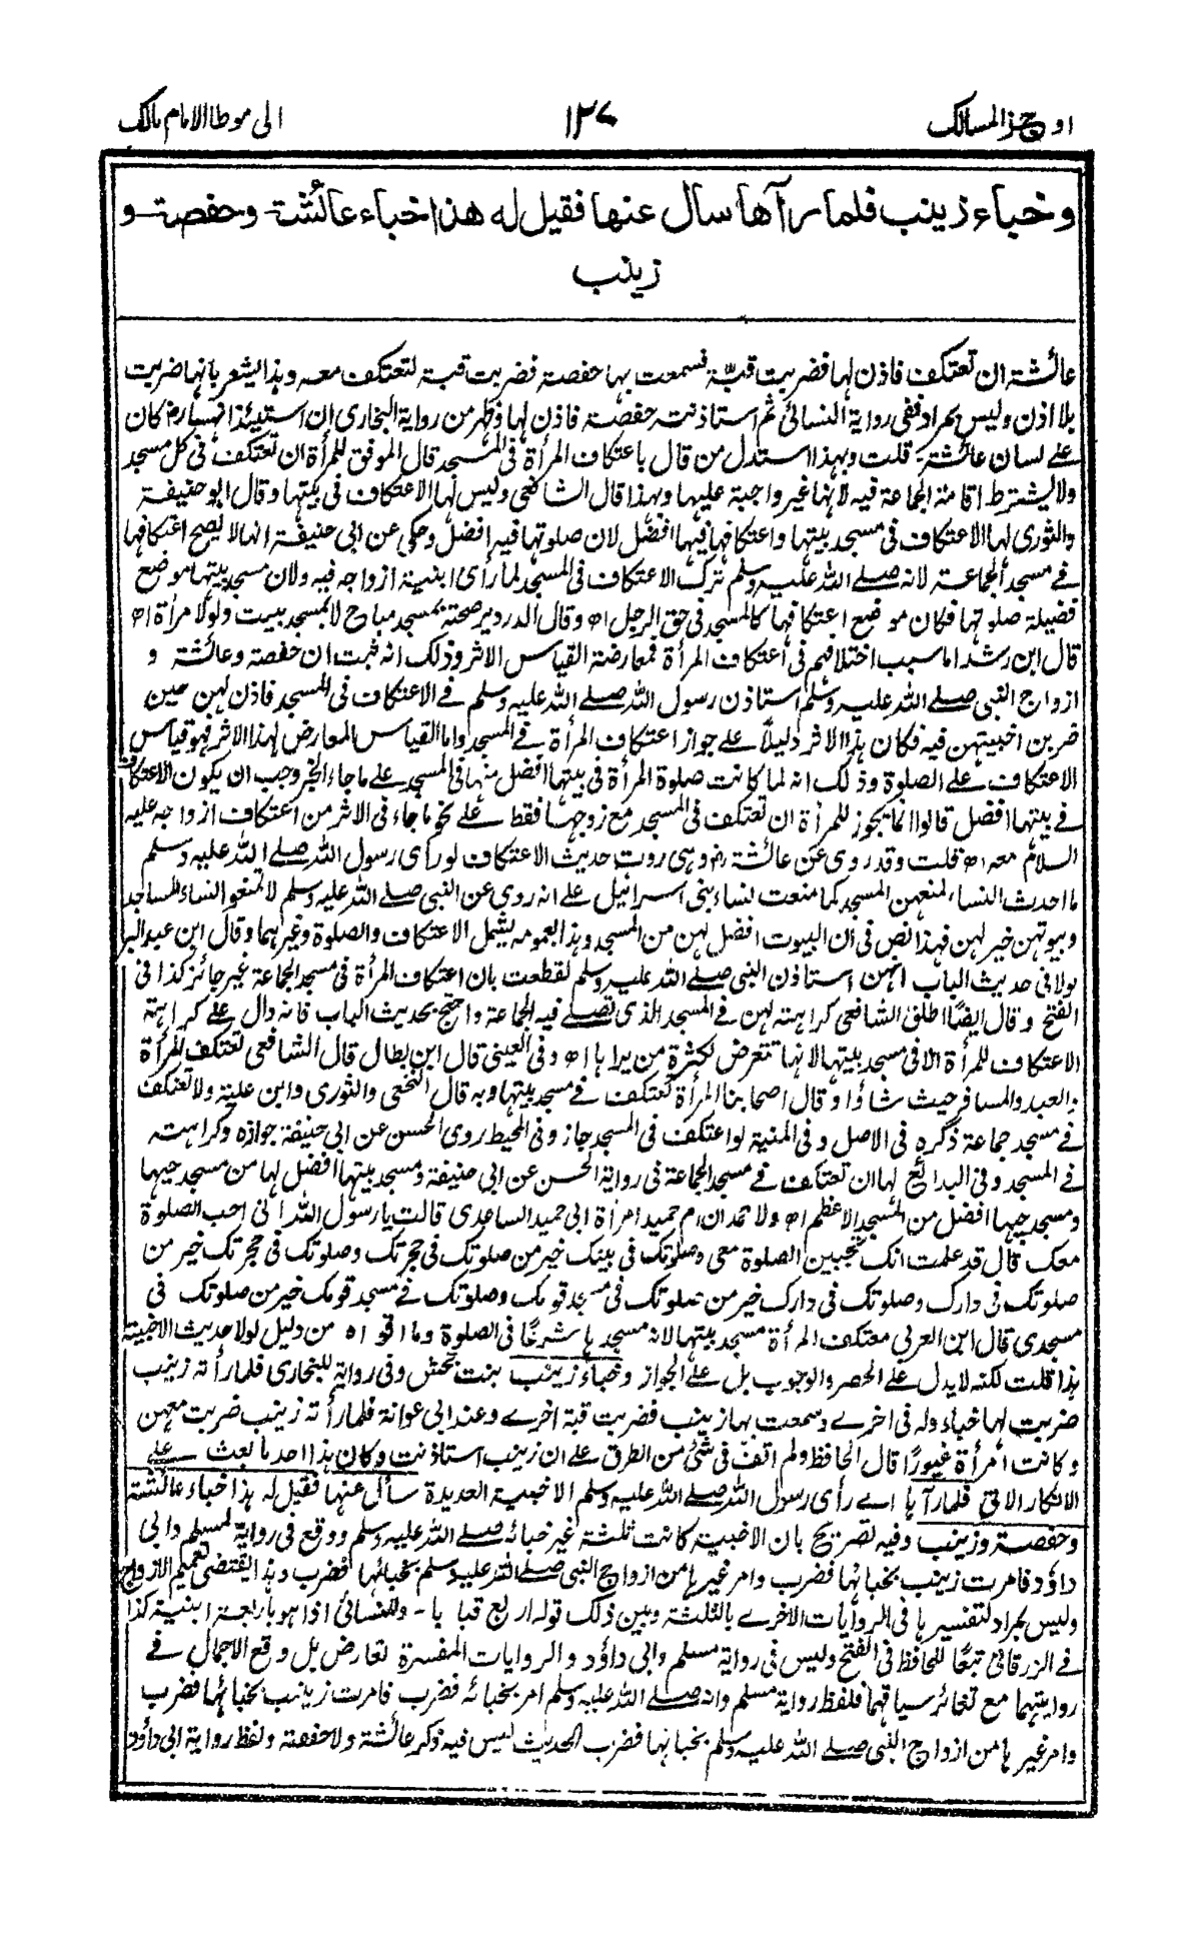 اوجز المسالک
١٢٧
الی موطا الامام مالک
وخباء زينب فلما رآها سال عنها فقيل له هذا خباء عائشة وحفصة و
زينب
عائشۃ ان تعتکف فاذن لہا فضربت قبۃ فسمعت بہا حفصۃ فضربت قبۃ لتعتکف معہ وہذا یشعر بانہا ضربت
بلا اذن ولیس بمراد ففی روایۃ النسائی ثم استاذنت حفصۃ فاذن لہا وظہر من روایۃ البخاری ان استیذانہا رم کان
علے لسان عائشۃ۔ قلت وبہذا استدل من قال باعتکاف المرأۃ فی المسجد قال الموفق للمرأۃ ان تعتکف فی کل مسجد
ولا یشترط اقامۃ الجماعۃ فیہ لانہا غیر واجبۃ علیہا وبہذا قال الشافعی ولیس لہا الاعتکاف فی بیتہا وقال ابو حنیفۃ
والثوری لہا الاعتکاف فی مسجد بیتہا واعتکافہا فیہا افضل لان صلوتہا فیہ افضل وحکی عن ابی حنیفۃ انہا لا یصح اعتکافہا
فے مسجد الجماعۃ لانہ صلے اللہ علیہ وسلم ترک الاعتکاف فی المسجد لما رأی ابنیۃ ازواجہ فیہ ولان مسجد بیتہا موضع
فضیلۃ صلوتہا فکان موضع اعتکافہا کالمسجد فی حق الرجل اھ وقال الدردیر صحتہ بمسجد مباح لا بمسجد بیت ولو لامرأۃ اھ
قال ابن رشد اما سبب اختلافہم فی اعتکاف المرأۃ فمعارضۃ القیاس الاثر وذلک انہ ثبت ان حفصۃ وعائشۃ و
ازواج النبی صلے اللہ علیہ وسلم استاذن رسول اللہ صلے اللہ علیہ وسلم فے الاعتکاف فی المسجد فاذن لہن حین
ضربن اخبیتہن فیہ فکان ہذا الاثر دلیلاً علے جواز اعتکاف المرأۃ فے المسجد واما القیاس المعارض لہذا الاثر فہو قیاس
الاعتکاف علے الصلوۃ وذلک انہ لما کانت صلوۃ المرأۃ فی بیتہا افضل منہا فی المسجد علے ما جاء الخبر وجب ان یکون الاعتکاف
فے بیتہا افضل قالوا انما یجوز للمرأۃ ان تعتکف فی المسجد مع زوجہا فقط علے نحو ما جاء فی الاثر من اعتکاف ازواجہ علیہ
السلام معہ اھ قلت وقد روی عن عائشۃ رم وہی روت حدیث الاعتکاف لو رأی رسول اللہ صلے اللہ علیہ وسلم
ما احدث النساء لمنعہن المسجد کما منعت نساء بنی اسرائیل علے انہ روی عن النبی صلے اللہ علیہ وسلم لا تمنعوا النساء المساجد
وبیوتہن خیر لہن فہذا نص فی ان البیوت افضل لہن من المسجد وہذا بعمومہ یشمل الاعتکاف والصلوۃ وغیرہما وقال ابن عبد البر
لولا فی حدیث الباب انہن استاذن النبی صلے اللہ علیہ وسلم لقطعت بان اعتکاف المرأۃ فی مسجد الجماعۃ غیر جائز کذا فی
الفتح وقال ایضاً اطلق الشافعی کراہتہ لہن فے المسجد الذی تصلے فیہ الجماعۃ واحتج بحدیث الباب فانہ دال علے کراہۃ
الاعتکاف للمرأۃ الا فی مسجد بیتہا لانہا تتعرض لکثرۃ من یراہا اھ وفی العینی قال ابن بطال قال الشافعی تعتکف المرأۃ
والعبد والمسافر حیث شاؤا وقال اصحابنا المرأۃ تعتکف فے مسجد بیتہا وبہ قال النخعی والثوری وابن علیۃ ولا تعتکف
فے مسجد جماعۃ ذکرہ فی الاصل وفی المنیۃ لو اعتکف فی المسجد جاز وفی المحیط روی الحسن عن ابی حنیفۃ جوازہ وکراہتہ
فے المسجد وفی البدائع لہا ان تعتکف فے مسجد الجماعۃ فی روایۃ الحسن عن ابی حنیفۃ ومسجد بیتہا افضل لہا من مسجد حیہا
ومسجد حیہا افضل من المسجد الاعظم اھ ولاحمد ان ام حمید امرأۃ ابی حمید الساعدی قالت یا رسول اللہ انی احب الصلوۃ
معک قال قد علمت انک تحبین الصلوۃ معی وصلوتک فی بیتک خیر من صلوتک فی حجرتک وصلوتک فی حجرتک خیر من
صلوتک فی دارک وصلوتک فی دارک خیر من صلوتک فی مسجد قومک وصلوتک فے مسجد قومک خیر من صلوتک فی
مسجدی قال ابن العربی معتکف المرأۃ مسجد بیتہا لانہ مسجدہا شرعًا فی الصلوۃ وما اقواہ من دلیل لولا حدیث الاخبیۃ
ہذا قلت لکنہ لا یدل علے الحصر والوجوب بل علے الجواز وخباء زینب بنت جحش وفی روایۃ للبخاری فلما رأتہ زینب
ضربت لہا خباء ولہ فی اخرے وسمعت بہا زینب فضربت قبۃ اخرے وعند ابی عوانۃ فلما رأتہ زینب ضربت معہن
وکانت امرأۃ غیورًا قال الحافظ ولم اقف فی شئ من الطرق علے ان زینب استاذنت وکان ہذا احد ما بعث علے
الانکار الاتی فلما رآہا اے رأی رسول اللہ صلے اللہ علیہ وسلم الاخبیۃ العدیدۃ سأل عنہا فقیل لہ ہذا خباء عائشۃ
وحفصۃ وزینب وفیہ تصریح بان الاخبیۃ کانت ثلثۃ غیر خبائہ صلے اللہ علیہ وسلم ووقع فی روایۃ لمسلم وابی
داؤد فامرت زینب بخبائہا فضرب وامر غیرہا من ازواج النبی صلے اللہ علیہ وسلم بخبائہا فضرب وہذا یقتضی تعمیم الازواج
ولیس بمراد لتفسیرہا فی الروایات الاخرے بالثلثۃ وبین ذلک قولہ اربع قباب۔ وللنسائی اذا ہو باربعۃ ابنیۃ کذا
فے الزرقانی تبعًا للحافظ فی الفتح ولیس فی روایۃ مسلم وابی داؤد والروایات المفسرۃ تعارض بل وقع الاجمال فے
روایتہما مع تغائر سیاقہما فلفظ روایۃ مسلم وانہ صلے اللہ علیہ وسلم امر بخبائہ فضرب فامرت زینب بخبائہا فضرب
وامر غیرہا من ازواج النبی صلے اللہ علیہ وسلم بخبائہا فضرب الحدیث لیس فیہ ذکر عائشۃ ولا حفصۃ ولفظ روایۃ ابی داؤد